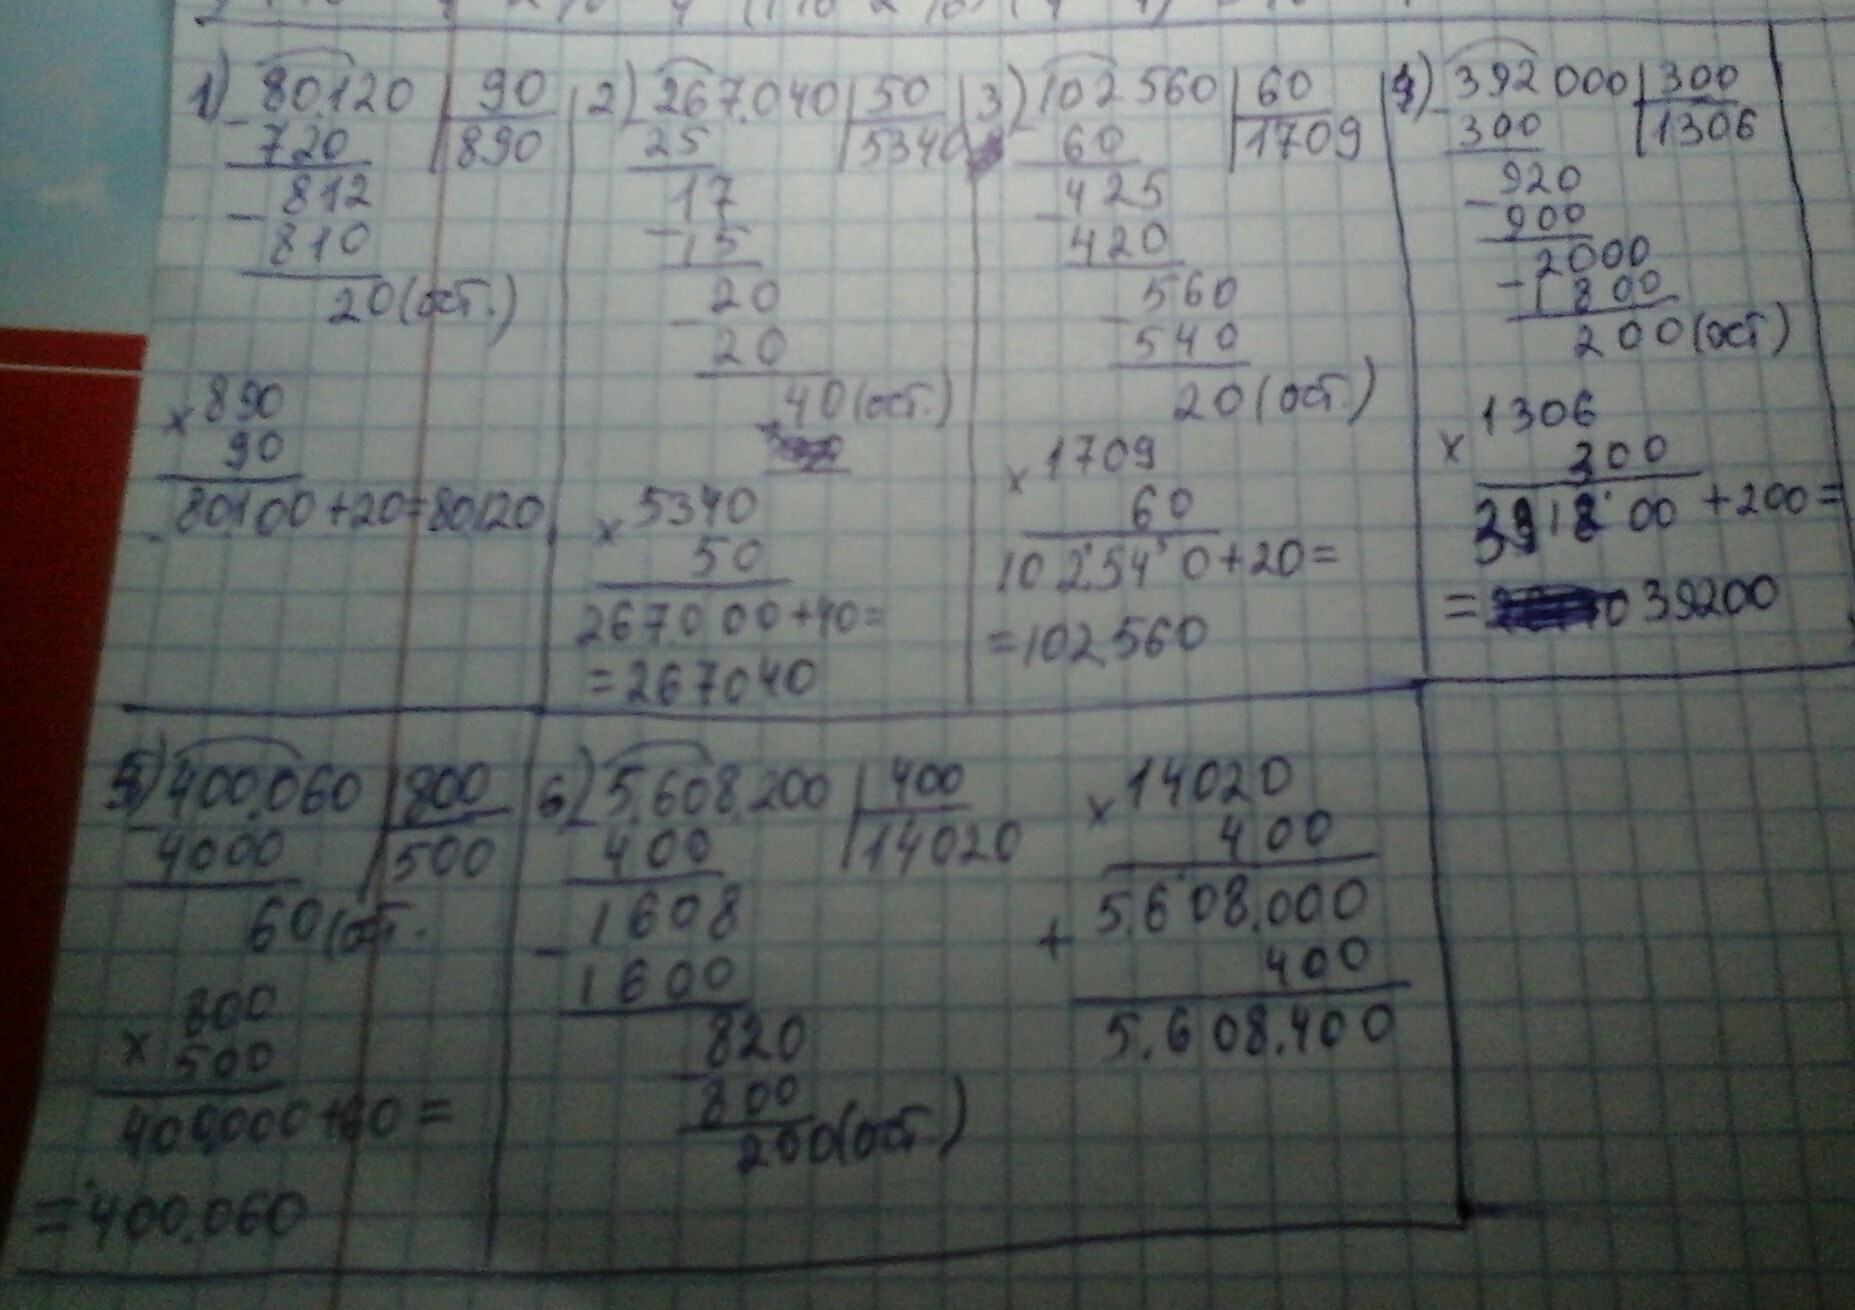 1) 80.120 | 90
− 720 | 890
812
− 810
20 (ост.)
× 890
90
80100 + 20 = 80120
2) 267.040 | 50
− 25 | 5340
17
− 15
20
− 20
40 (ост.)
× 5340
50
267.000 + 40 =
= 267040
3) 102560 | 60
− 60 | 1709
425
− 420
560
− 540
20 (ост.)
× 1709
60
102540 + 20 =
= 102560
4) 392000 | 300
− 300 | 1306
920
− 900
2000
− 1800
200 (ост)
× 1306
300
391800 + 200 =
= 39200
5) 400.060 | 800
− 4000 | 500
60 (ост.
× 800
500
400.000 + 60 =
= 400.060
6) 5.608.200 | 400
− 400 | 14020
1608
− 1600
820
− 800
200 (ост.)
× 14020
400
5.608.000
+ 400
5.608.400